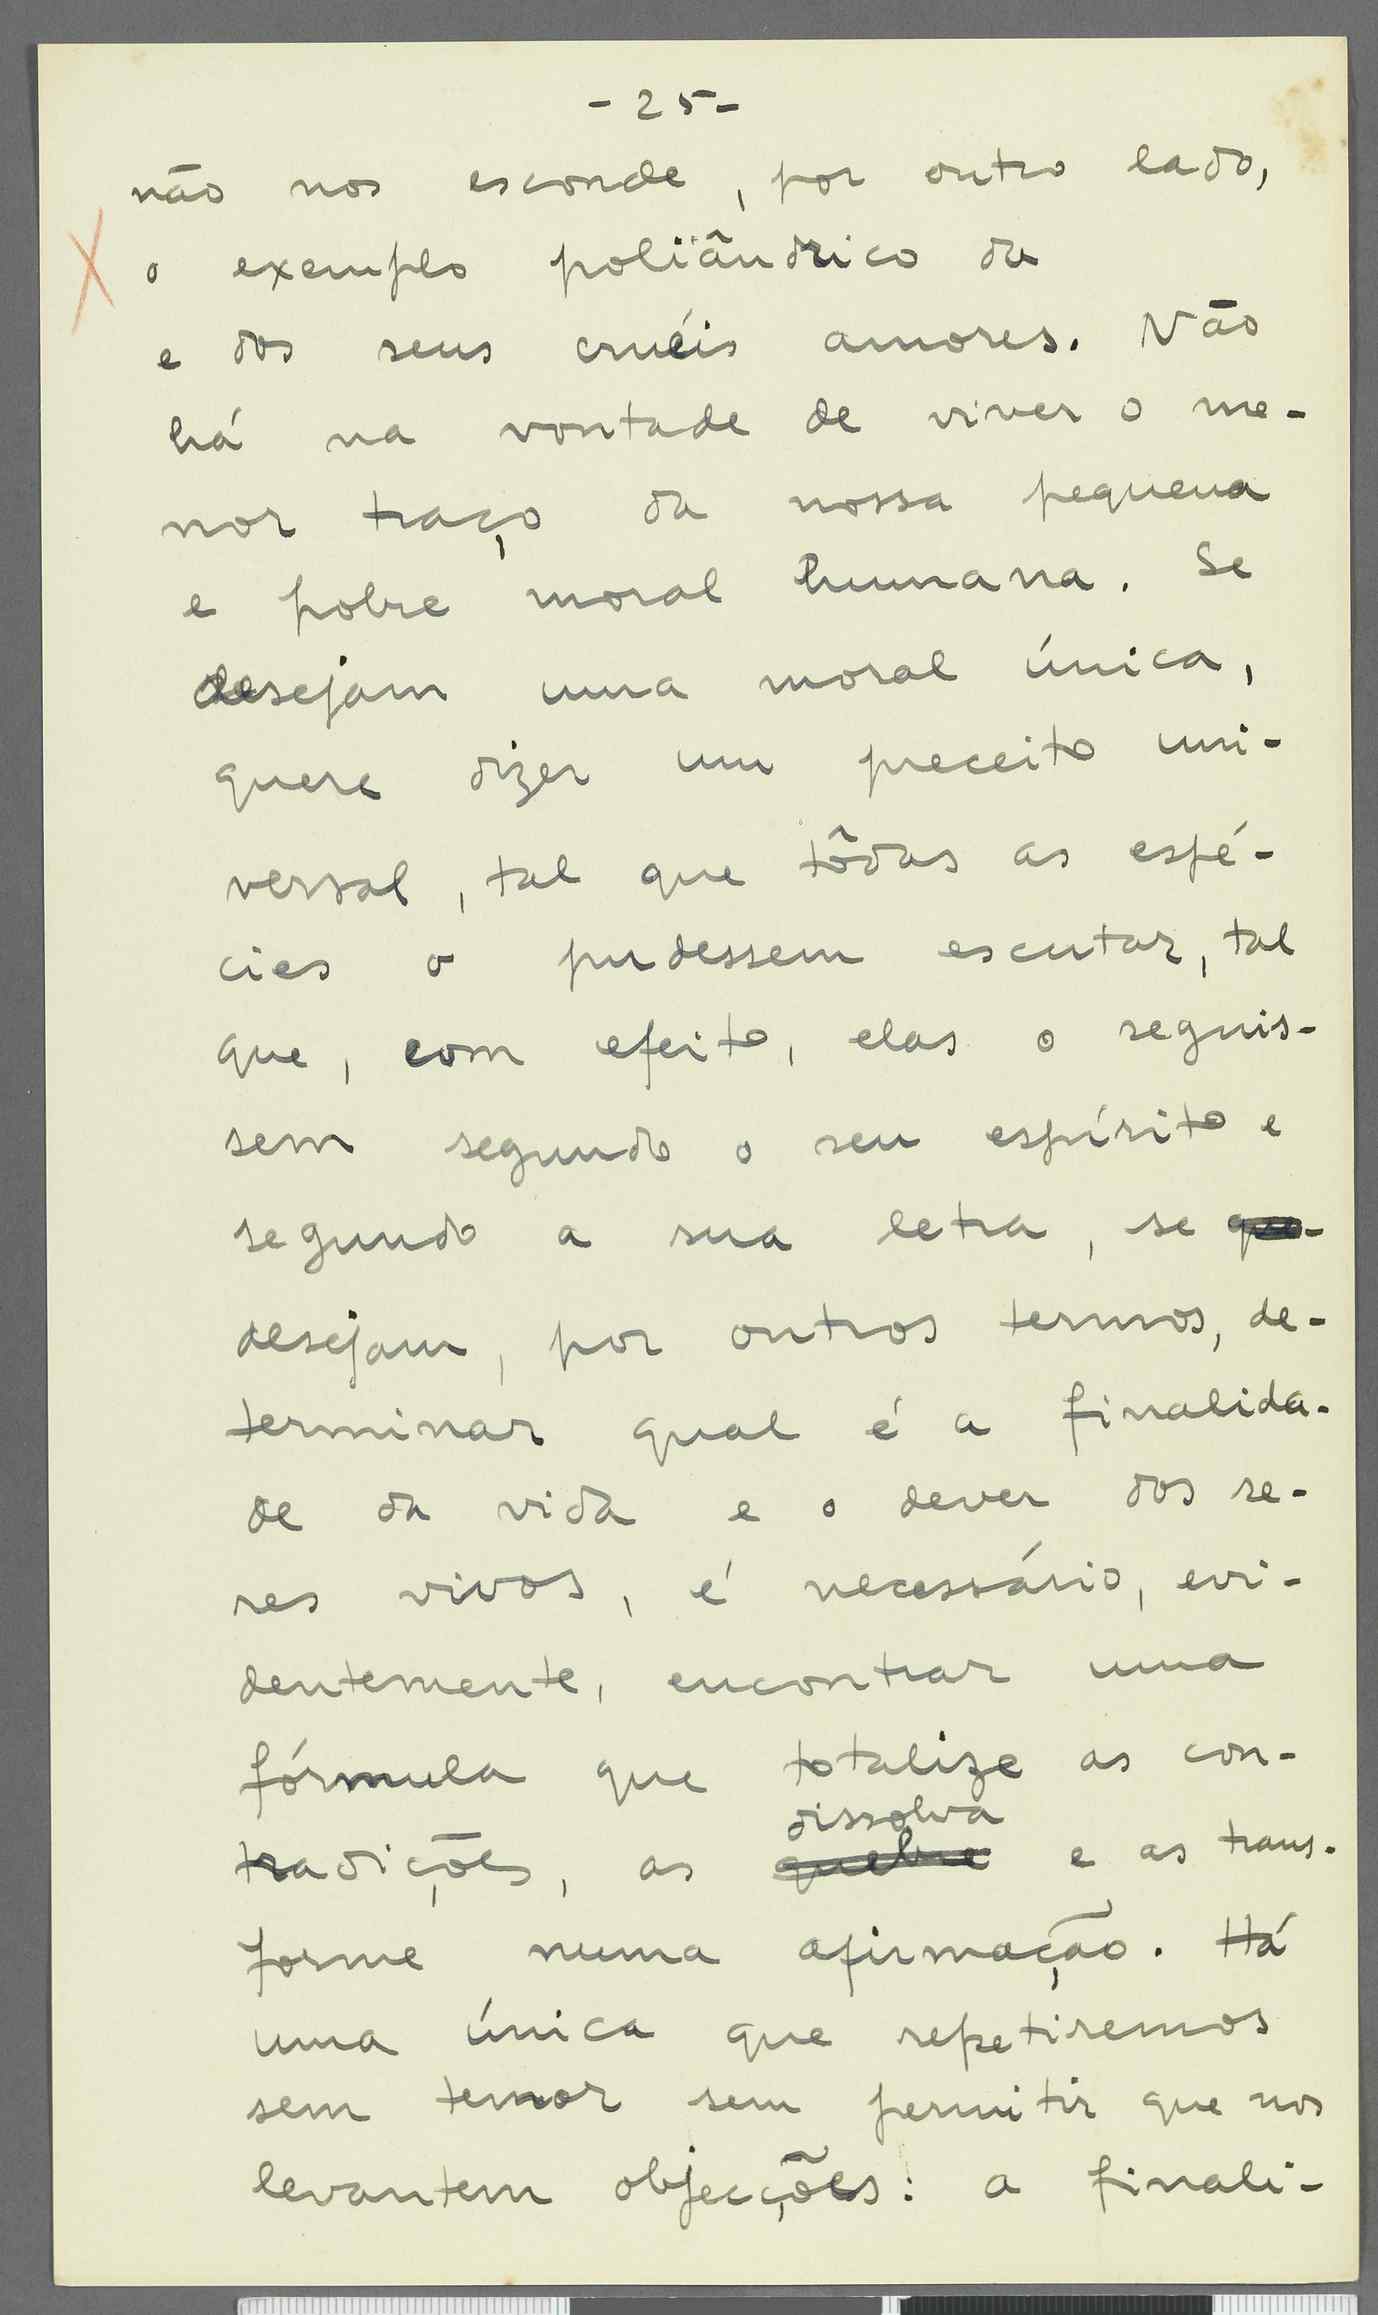 - 25 -
não nos esconde, por outro lado,
o exemplo poliândrico da
e dos seus cruéis amores. Não
há na vontade de viver o me-
nor traço da nossa pequena
e pobre moral humana. Se
desejam uma moral única,
quere dizer um preceito uni-
versal, tal que tôdas as espé-
cies o pudessem escutar, tal
que, com efeito, elas o seguis-
sem segundo o seu espírito e
segundo a sua letra, se que-
desejam, por outros termos, de-
terminar qual é a finalida-
de da vida e o dever dos se-
res vivos, é necessário, evi-
dentemente, encontrar uma
fórmula que totalize as con-
dissolva
tradições, as quebre e as trans-
forme numa afirmação. Há
uma única que repetiremos
sem temor sem permitir que nos
levantem objecções: a finali-